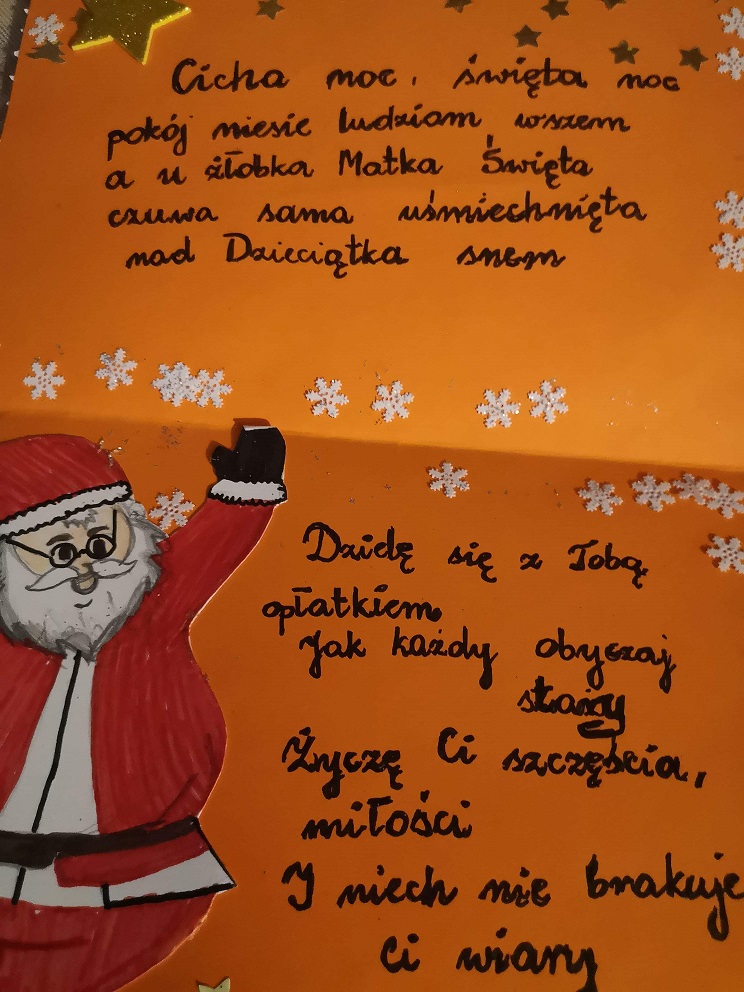 Cicha noc, święta noc
pokój niesie ludziom wszem
a u żłobka Matka Święta
czuwa sama uśmiechnięta
nad Dzieciątka snem
Dzielę się z Tobą
opłatkiem
Jak każdy obyczaj
stary
Życzę Ci szczęścia,
miłości
I niech nie brakuje
Ci wiary